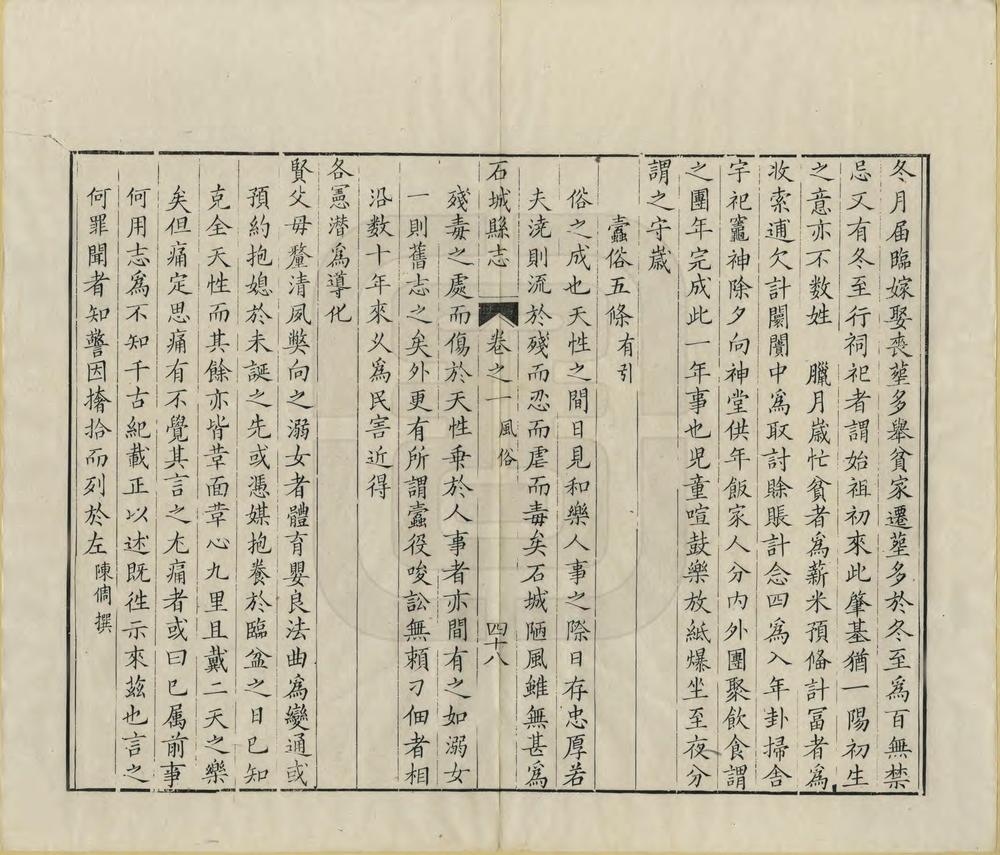 冬月届臨嫁娶喪塟多舉貧家遷塟多於冬至爲百無禁
忌又有冬至行祠祀者謂始祖初來此肇基猶一陽初生
之意亦不数姓　臘月嵗忙貧者爲薪米預俻計冨者爲
收索逋欠計闤闠中爲取討賒賬計念四爲入年卦掃舎
宇祀竈神除夕向神堂供年飯家人分内外團聚飲食謂
之團年完成此一年事也児童喧鼓樂放紙爆坐至夜分
謂之守嵗
蠹俗五條有引
俗之成也天性之間日見和樂人事之際日存忠厚若
夫澆則流於殘而忍而虐而毒矣石城陋風雖無甚爲
石城縣志　卷之一　風俗　四十八
殘毒之處而傷於天性乗於人事者亦間有之如溺女
一則舊志之矣外更有所謂蠹役唆訟無頼刁佃者相
沿数十年來乆爲民害近得
各憲潜爲導化
賢父母釐清夙弊向之溺女者體育嬰良法曲爲變通或
預約抱媳於未誕之先或憑媒抱養於臨盆之日已知
克全天性而其餘亦皆革面革心九里且戴二天之樂
矣但痛定思痛有不覺其言之尤痛者或曰已属前事
何用志爲不知千古紀載正以述既徃示來茲也言之
何罪聞者知警因搚拾而列於左陳倜撰